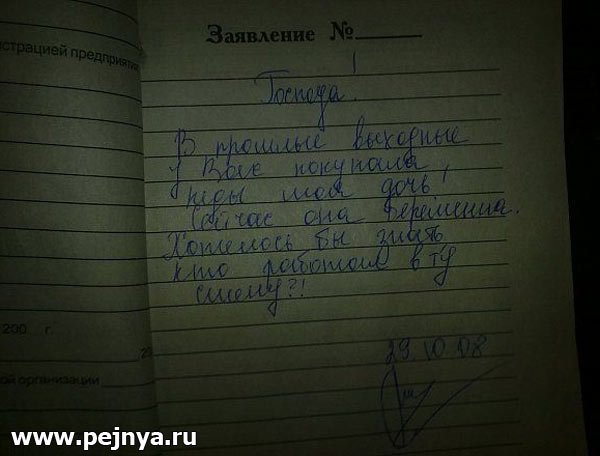 Заявление №
страцией предприятия
!
Господа
В прошлые выходные
у Вас покупала
кеды моя дочь!
Сейчас она беременна.
Хотелось бы знать
кто работал в ту
смену?!
200 г.
2
29.10.08
ой организации
www.pejnya.ru